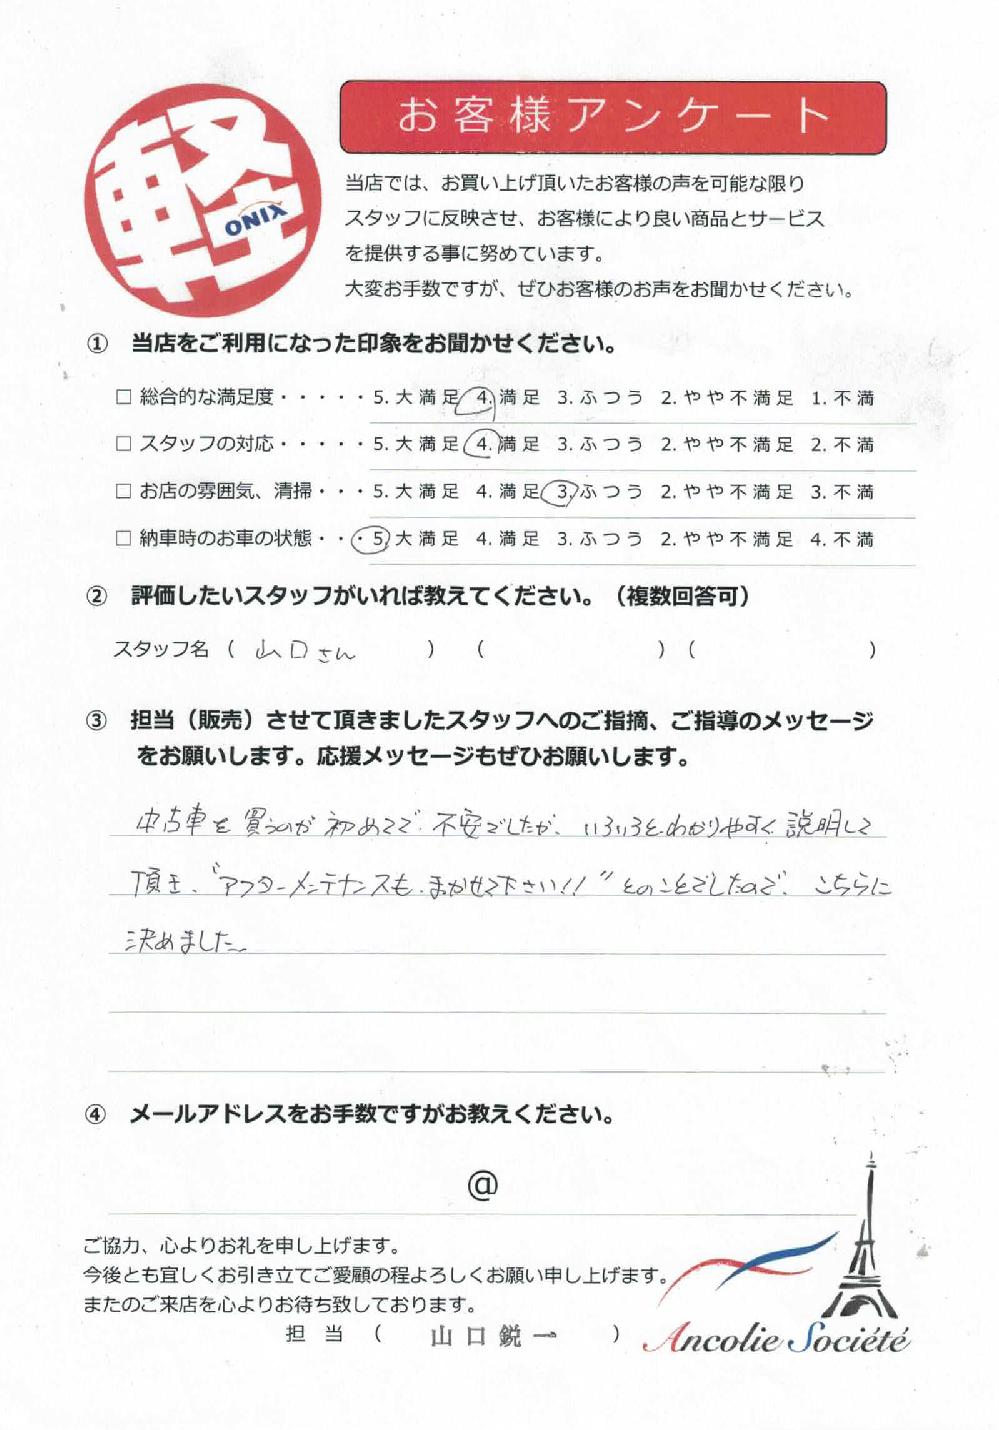 お客様アンケート
軽
ONIX
当店では、お買い上げ頂いたお客様の声を可能な限り
スタッフに反映させ、お客様により良い商品とサービス
を提供する事に努めています。
大変お手数ですが、ぜひお客様のお声をお聞かせください。
① 当店をご利用になった印象をお聞かせください。
□ 総合的な満足度・・・・・5.大満足 4.満足 3.ふつう 2.やや不満足 1.不満
□ スタッフの対応・・・・・5.大満足 4.満足 3.ふつう 2.やや不満足 2.不満
□ お店の雰囲気、清掃・・・5.大満足 4.満足 3.ふつう 2.やや不満足 3.不満
□ 納車時のお車の状態・・・5.大満足 4.満足 3.ふつう 2.やや不満足 4.不満
② 評価したいスタッフがいれば教えてください。（複数回答可）
スタッフ名（ 山口さん ）（ ）（ ）
③ 担当（販売）させて頂きましたスタッフへのご指摘、ご指導のメッセージ
をお願いします。応援メッセージもぜひお願いします。
中古車を買うのが初めてで、不安でしたが、いろいろとわかりやすく説明して
頂き、"アフターメンテナンスも、まかせて下さい!!"とのことでしたので、こちらに
決めました。
④ メールアドレスをお手数ですがお教えください。
@
ご協力、心よりお礼を申し上げます。
今後とも宜しくお引き立てご愛顧の程よろしくお願い申し上げます。
またのご来店を心よりお待ち致しております。
担当（ 山口鋭一 ）
Ancolie Société